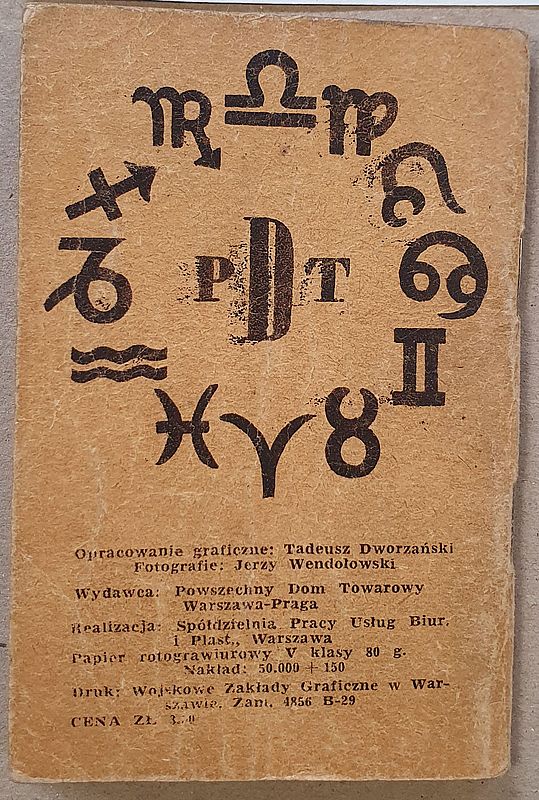 PDT
Opracowanie graficzne: Tadeusz Dworzański
Fotografie: Jerzy Wendołowski
Wydawca: Powszechny Dom Towarowy
Warszawa-Praga
Realizacja: Spółdzielnia Pracy Usług Biur.
i Plast., Warszawa
Papier rotograwiurowy V klasy 80 g.
Nakład: 50.000 + 150
Druk: Wojskowe Zakłady Graficzne w War-
szawie. Zam. 4856 B-29
CENA ZŁ